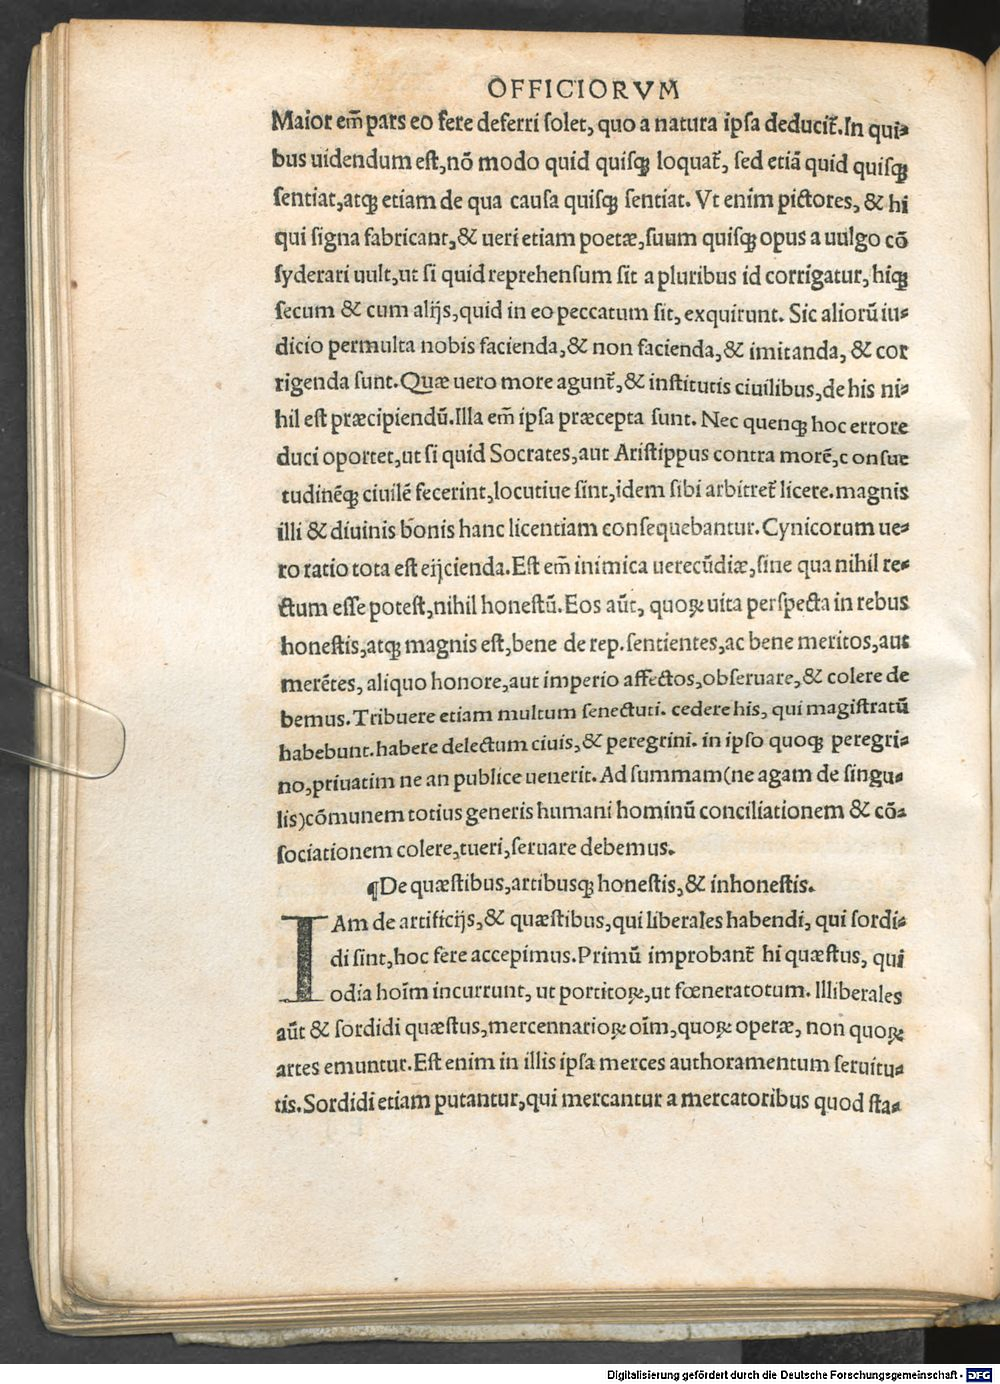 OFFICIORVM
Maior em̃ pars eo fere deferri ſolet, quo a natura ipſa deducit̃. In qui⸗
bus uidendum eſt, nõ modo quid quiſq̃ loquat̃, ſed etiã quid quiſq̃
ſentiat, atq̃ etiam de qua cauſa quiſq̃ ſentiat. Vt enim pictores, & hi
qui ſigna fabricant, & ueri etiam poetæ, ſuum quiſq̃ opus a uulgo cõ
ſyderari uult, ut ſi quid reprehenſum ſit a pluribus id corrigatur, hiq̃
ſecum & cum alijs, quid in eo peccatum ſit, exquirunt. Sic aliorũ iu⸗
dicio permulta nobis facienda, & non facienda, & imitanda, & cor
rigenda ſunt. Quæ uero more agunt̃, & inſtitutis ciuilibus, de his ni⸗
hil eſt præcipiendũ. Illa em̃ ipſa præcepta ſunt. Nec quenq̃ hoc errore
duci oportet, ut ſi quid Socrates, aut Ariſtippus contra morẽ, conſue
tudinẽq̃ ciuilẽ fecerint, locutiue ſint, idem ſibi arbitret̃ licere. magnis
illi & diuinis bonis hanc licentiam conſequebantur. Cynicorum ue⸗
ro ratio tota eſt eijcienda. Eſt em̃ inimica uerecũdiæ, ſine qua nihil re⸗
ctum eſſe poteſt, nihil honeſtũ. Eos aũt, quoꝝ uita perſpecta in rebus
honeſtis, atq̃ magnis eſt, bene de rep. ſentientes, ac bene meritos, aut
merẽtes, aliquo honore, aut imperio affectos, obſeruare, & colere de
bemus. Tribuere etiam multum ſenectuti. cedere his, qui magiſtratũ
habebunt. habere delectum ciuis, & peregrini. in ipſo quoq̃ peregri⸗
no, priuatim ne an publice uenerit. Ad ſummam (ne agam de ſingu⸗
lis) cõmunem totius generis humani hominũ conciliationem & cõ⸗
ſociationem colere, tueri, ſeruare debemus.
¶De quæſtibus, artibusq̃ honeſtis, & inhoneſtis.
IAm de artificijs, & quæſtibus, qui liberales habendi, qui ſordi⸗
di ſint, hoc fere accepimus. Primũ improbant̃ hi quæſtus, qui
odia hoĩm incurrunt, ut portitoꝝ, ut fœneratotum. Illiberales
aũt & ſordidi quæſtus, mercennarioꝝ oĩm, quoꝝ operæ, non quoꝝ
artes emuntur. Eſt enim in illis ipſa merces authoramentum ſeruitu⸗
tis. Sordidi etiam putantur, qui mercantur a mercatoribus quod ſta⸗
Digitalisierung gefördert durch die Deutsche Forschungsgemeinschaft - DFG